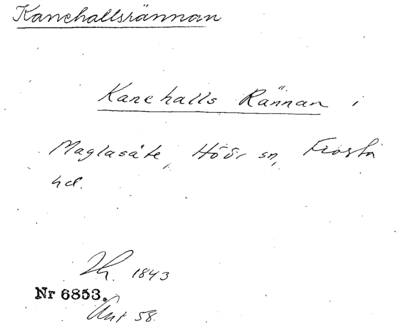 Kanehallsrännan
Kanehalls Rännan i
Maglasäte, Höör sn, Frosta
hd.
1843
Nr 6853.
58.